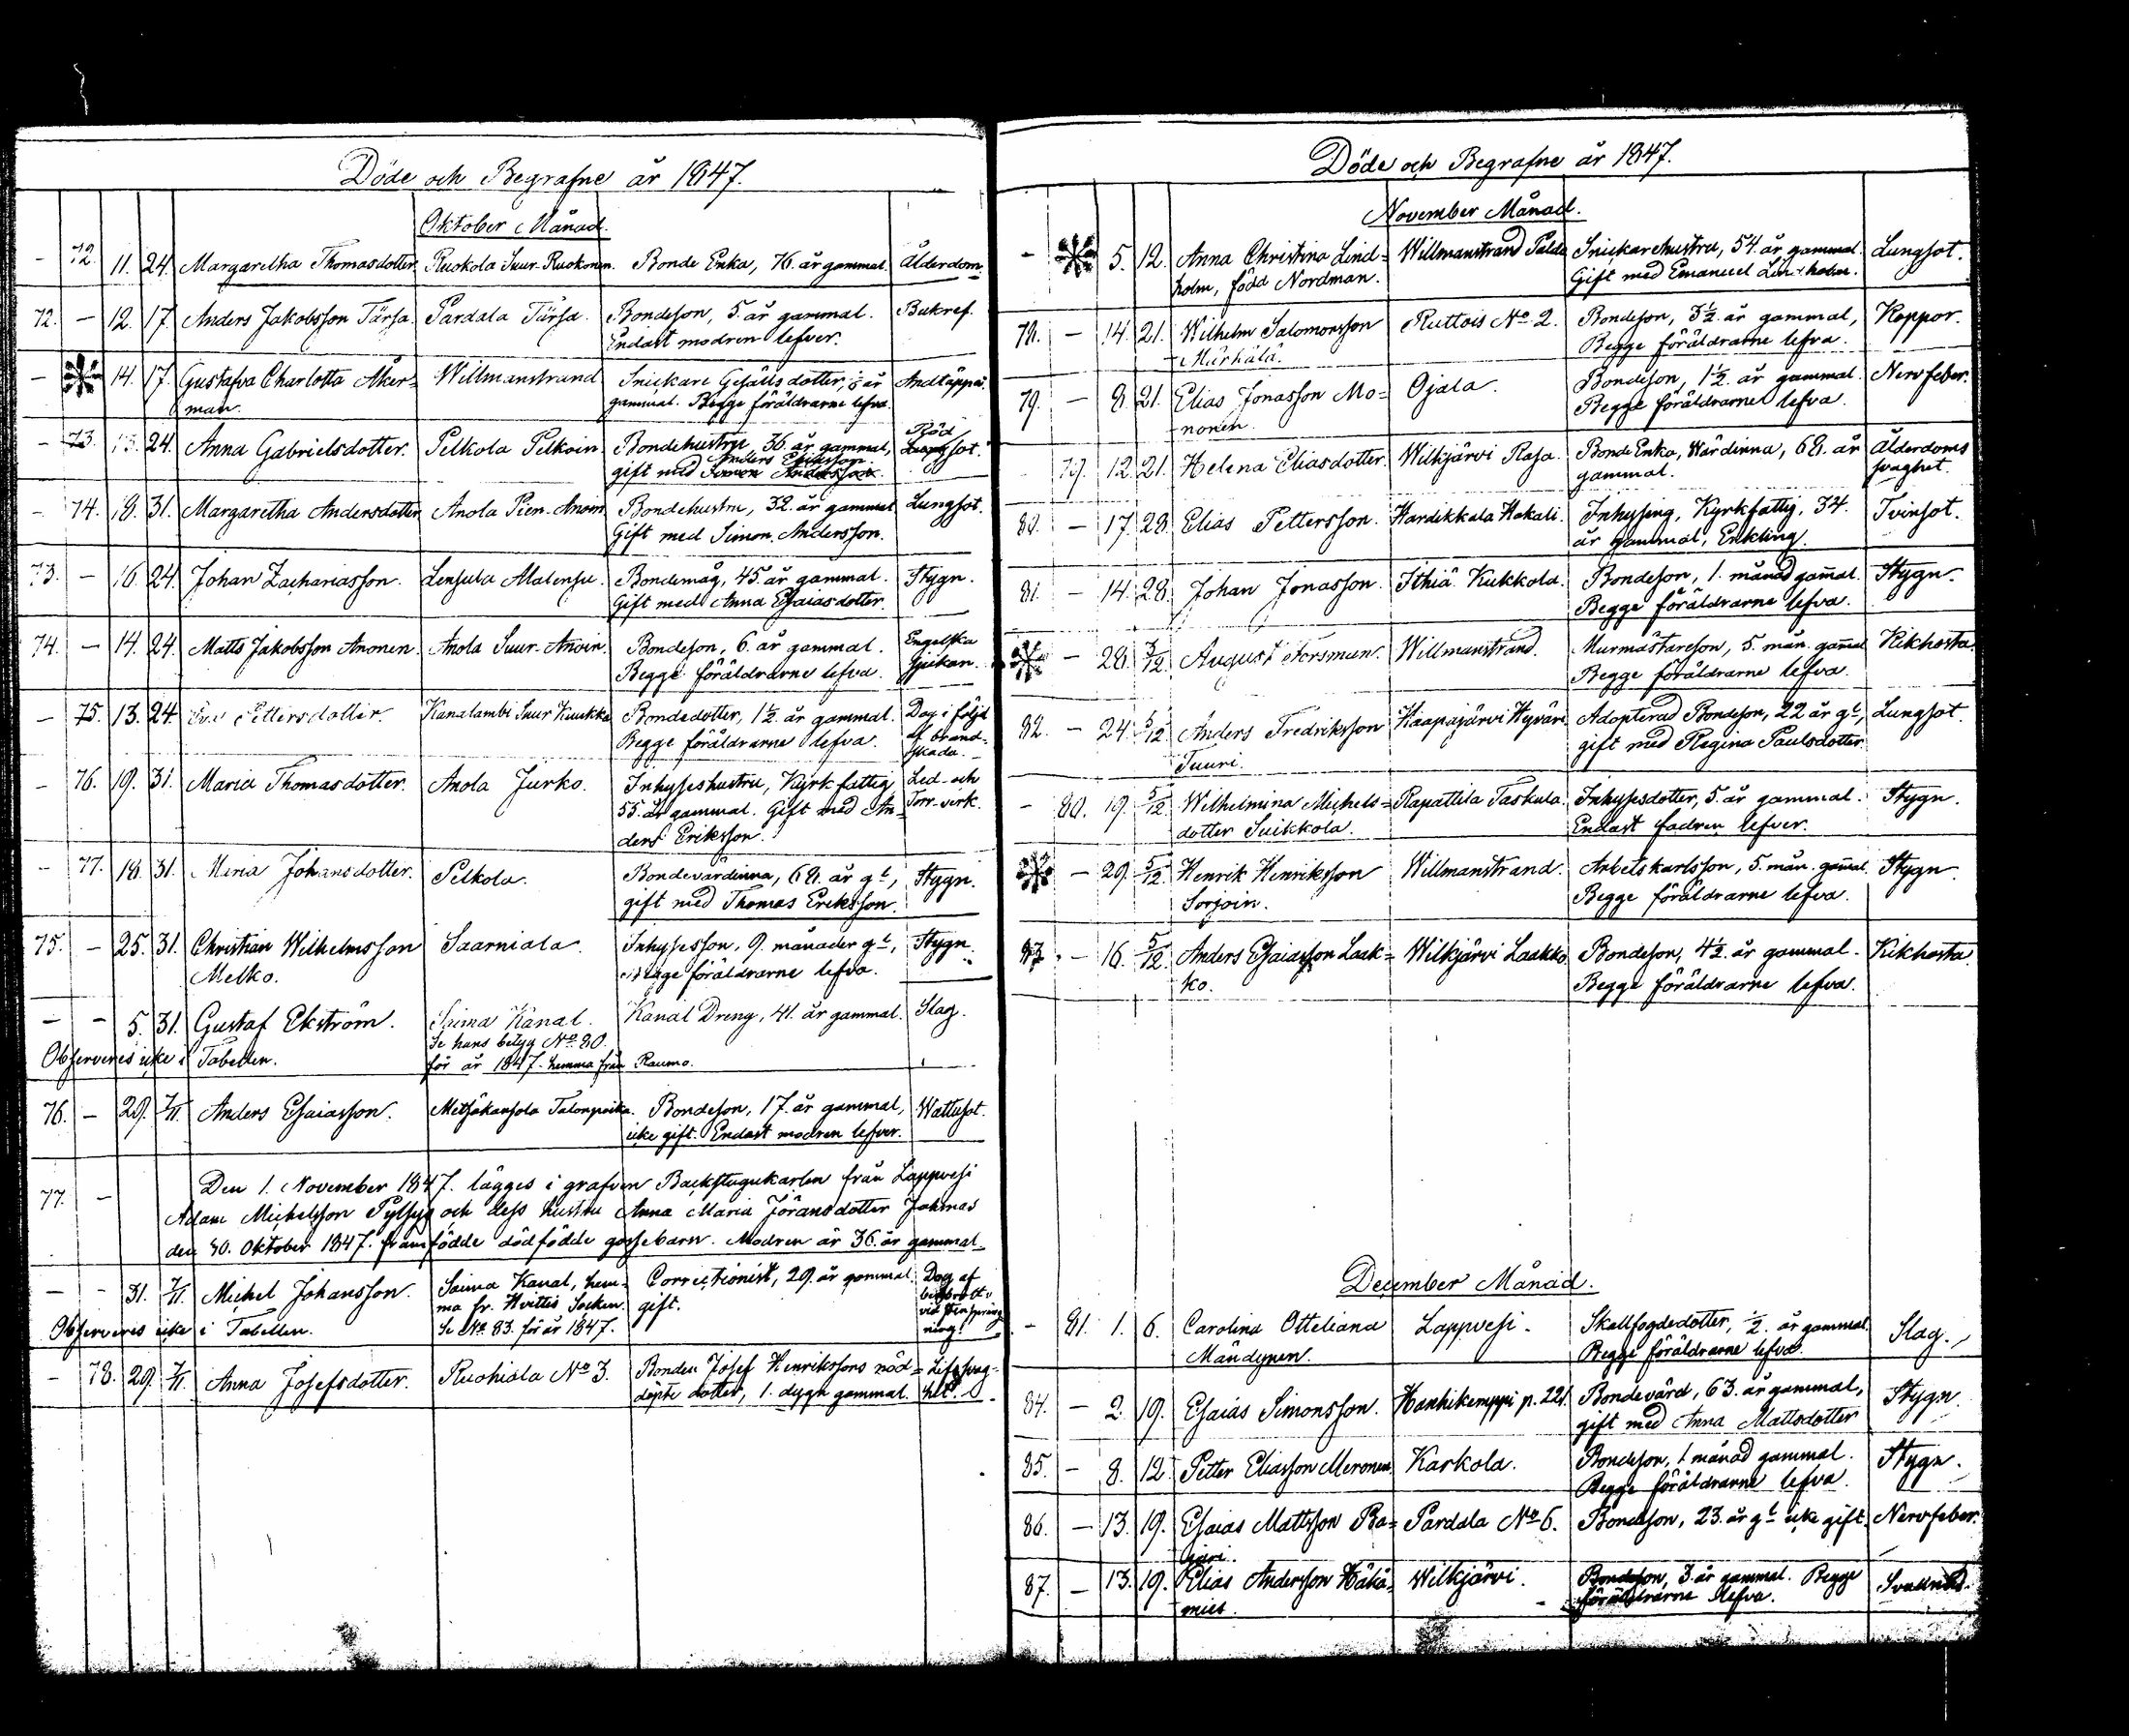 Döde och Begrafne år 1847.
Oktober Månad.
– 72. 11. 24. Margaretha Thomasdotter. Ruokola Suur-Ruokonen. Bonde Enka, 76. år gammal. Ålderdom.
72. – 12. 17. Anders Jakobsson Tärsa. Pardala Tärsa. Bondeson, 5. år gammal. Bukref.
Endast modren lefver.
– 14. 17. Gustafva Charlotta Åker= Willmanstrand Snickare Gesälls dotter, år Andtäppa.
man. gammal. Begge föräldrarne lefva.
– 73. 13. 24. Anna Gabrielsdotter. Pelkola Pelkoin Bondehustru 36. år gammal, Röd sot.
gift med Anders Eriksson.
– 74. 18. 31. Margaretha Andersdotter Anola Pien-Anoin Bondehustru, 32. år gammal Lungsot.
Gift med Simon Andersson.
73. – 16. 24. Johan Zachariasson. Lensula Alalensu. Bondemåg, 45. år gammal. Stygn.
Gift med Anna Esaiasdotter.
74. – 14. 24. Matts Jakobsson Anonen. Anola Suur-Anoin. Bondeson, 6. år gammal. Engelska
Begge föräldrarne lefva. Sjukan.
– 75. 13. 24. Eva Pettersdotter. Kanalambi Suur Kuukka Bondedotter, 1½. år gammal. Dog i följd
Begge föräldrarne lefva. af brand-
skada.
– 76. 19. 31. Maria Thomasdotter. Anola Jurko. Inhyseshustru, Kyrkfattig Led- och
55. år gammal. Gift med An- Torr-verk.
ders Eriksson.
– 77. 18. 31. Maria Johansdotter. Pelkola. Bondevärdinna, 68. år gl, Stygn.
gift med Thomas Eriksson.
75. – 25. 31. Christian Wilhelmsson Saarniala. Inhysesson, 9. månader gl, Stygn.
Melko. Begge föräldrarne lefva.
– – 5. 31. Gustaf Ekström. Saima Kanal. Kanal Dreng, 41. år gammal. Slag.
Se hans betyg No 80.
Observeres icke i Tabellen. för år 1847. hemma från Raumo.
76. – 29. 7/11. Anders Esaiasson. Metsäkansola Talonpoika. Bondeson, 17. år gammal, Wattusot.
icke gift. Endast modren lefver.
77. – Den 1. November 1847. lägges i grafven Backstugukarlen från Lappvesi
Adam Michelsson och dess hustru Anna Maria Jöransdotter
den 30. Oktober 1847. framfödde dödfödde gossebarn. Modren är 36. år gammal.
– – 31. 7/11. Michel Johansson. Saima Kanal, hem- Correctionist, 29. år gammal. Dog af
ma fr. Hvittis Socken. gift.
Observeres icke i Tabellen. Se No 83. för år 1847. ning!
– 78. 29. 7/11. Anna Josefsdotter. Ruohiala No 3. Bonden Josef Henrikssons nöd=
döpte dotter, 1. dygn gammal.
Döde och Begrafne år 1847.
November Månad.
– 5. 12. Anna Christina Lind= Willmanstrand Snickarehustru, 54. år gammal. Lungsot.
holm, född Nordman. Gift med Emanuel Lindholm.
78. – 14. 21. Wilhelm Salomonsson Ruttois No 2. Bondeson, 3½. år gammal, Koppor.
Märhälä. Begge föräldrarne lefva.
79. – 8. 21. Elias Jonasson Mo= Ojala. Bondeson, 1½. år gammal. Nervfeber.
nonen. Begge föräldrarne lefva.
79. 12. 21. Helena Eliasdotter. Wilkjärvi Rasa. Bonde Enka, Wärdinna, 68. år Ålderdoms
gammal. svaghet.
80. – 17. 28. Elias Pettersson. Hardikkala Hakali. Inhysing, Kyrkfattig, 34. Tvinsot.
år gammal, Enkling.
81. – 14. 28. Johan Jonasson. Ithiä Kukkola. Bondeson, 1. månad gam̄al. Stygn.
Begge föräldrarne lefva.
– 28. 5/12. August Forsman. Willmanstrand. Murmästareson, 5. mån. gam̄al Kikhosta.
Begge föräldrarne lefva.
82. – 24. 5/12. Anders Fredriksson Haapajärvi Hyväri. Adopterad Bondeson, 22 år gl, Lungsot.
Tuuri. gift med Regina Paulsdotter.
– 80. 19. 5/12. Wilhelmina Michels= Rapattila Taskula. Inhysesdotter, 5. år gammal. Stygn.
dotter Suikkola. Endast fadren lefver.
– 29. 5/12. Henrik Henriksson Willmanstrand. Arbetskarlsson, 5. mån. gam̄al Stygn.
Sorjoin. Begge föräldrarne lefva.
83. – 16. 5/12. Anders Esaiasson Laak= Wilkjärvi Laakko Bondeson, 4½. år gammal. Kikhosta.
ko. Begge föräldrarne lefva.
December Månad.
– 81. 1. 6. Carolina Otteliana Lappvesi. Skallfogdedotter, ½. år gammal. Slag.
Mändynen. Begge föräldrarne lefva.
84. – 2. 19. Esaias Simonsson. Hanhikemppi p. 221. Bondevärd, 63. år gammal, Stygn.
gift med Anna Mattsdotter
85. – 8. 12. Petter Eliasson Meronen. Karkola. Bondeson, 1 månad gammal. Stygn.
Begge föräldrarne lefva.
86. – 13. 19. Esaias Mattsson Ra= Pardala No 6. Bondeson, 23. år gl icke gift. Nervfeber.
87. – 13. 19. Elias Andersson Häkä= Wilkjärvi. Bondeson, 3. år gammal. Begge
mies. föräldrarne lefva.